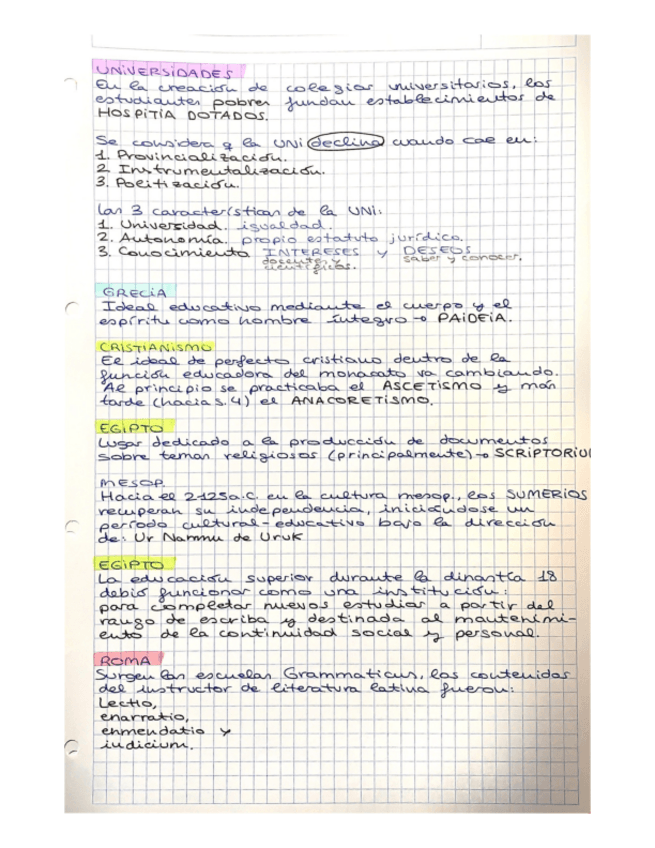 UNIVERSIDADES
En la creación de colegios universitarios, los
estudiantes pobres fundan establecimientos de
HOSPITIA DOTADOS.
Se considera q la UNI declina cuando cae en:
1. Provincialización.
2. Instrumentalización.
3. Politización.
Las 3 características de la UNI:
1. Universidad. igualdad.
2. Autonomía. propio estatuto jurídico.
3. Conocimiento INTERESES y DESEOS
docentes y saber y conocer.
científicos.
GRECIA
Ideal educativo mediante el cuerpo y el
espíritu como hombre íntegro → PAIDEIA.
CRISTIANISMO
El ideal de perfecto cristiano dentro de la
función educadora del monacato va cambiando.
Al principio se practicaba el ASCETISMO y más
tarde (hacia s.4) el ANACORETISMO.
EGIPTO
Lugar dedicado a la producción de documentos
sobre temas religiosos (principalmente) → SCRIPTORIU
MESOP.
Hacia el 2125a.C. en la cultura mesop., los SUMERIOS
recuperan su independencia, iniciándose un
período cultural-educativo bajo la dirección
de: Ur Nammu de Uruk
EGIPTO
La educación superior durante la dinastía 18
debió funcionar como una institución:
para completar nuevos estudios a partir del
rango de escriba y destinada al mantenimi-
ento de la continuidad social y personal.
ROMA
Surgen las escuelas Grammaticus, los contenidos
del instructor de literatura latina fueron:
Lectio,
enarratio,
enmendatio y
iudicium.